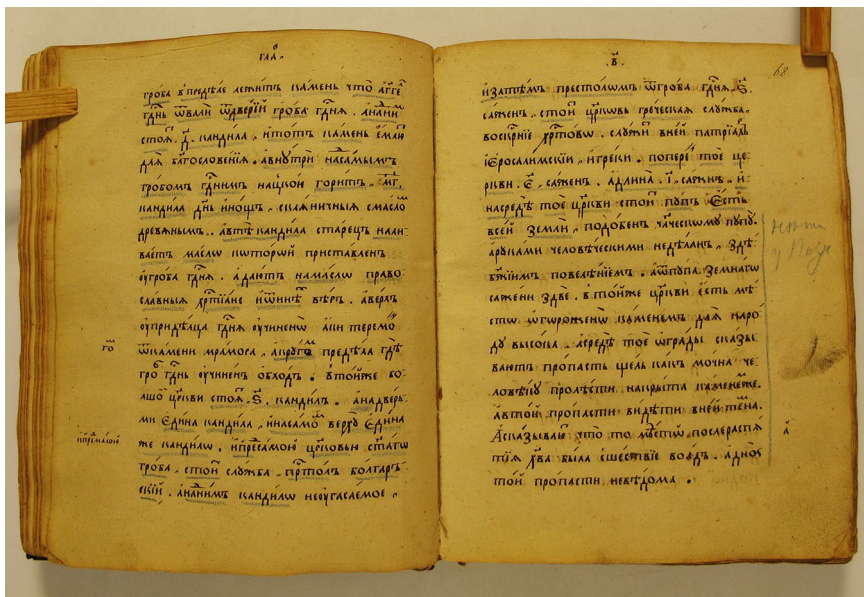 гла҃
гроба впредѣле лежитъ камень что а҆гг҃е
гд҃нь ѿвали ѿдверїи гроба гд҃ня . анани
стоя҆ . д҃ . кандила . ипотъ камень
для блгословенїя . авнутри насамымъ
гробомъ гд҃нимъ горитъ . мг҃ .
кандила дн҃ь инощь . скляничныя смасло
древянымъ . автѣ кандила старецъ нали
ваетъ масло которой приставленъ
оугроба гд҃ня . адаютъ намасло право
славныя хрт҃їане иѿинѣ вѣръ . аверхъ
оупридѣлца гд҃ня оучиненъ аки теремо
го
ѿкамени мрамоса . акругъ предѣла гд҃ѣ
гро гд҃нь оучиненъ обходъ . втойже бо
лшо цр҃кви стоя . ѕ҃ . кандилъ . анадверь
ми едина кандила , инасамо верху едина
же кандило . ипресамою цр҃ковью ст҃аго
гроба . стои служба . пр҃толъ болгаръ
скїй . ананимъ кандило неоугаслемое .
в҃
68
изатѣмъ престоломъ ѿгроба гд҃ня . ѕ҃ .
саженъ . стои цр҃ковь греческая служба .
воскр҃нїе хр҃товw . служи вней патрїархъ
їеросалимскїи . игреки . попере тое це
ркви . е҃ . саженъ . адлина . і҃ . сажнъ . и
насредѣ тое цр҃кви стои пупъ естъ
всей земли . подобенъ чл҃ческому пупу .
аруками человѣческими недѣланъ . здѣ
бж҃їимъ повелѣнїемъ . аѿпупа земнагw
сажени здве . втойже цр҃кви есть мѣ
сто ѡгворожено каменемъ для наро
ду высока . асредѣ тое ѡграды сказы
ваютъ пропасть щель какъ мочна че
ловѣку пролѣсти накрыта каменемже .
автой пропасти видѣти вней тена .
Асказываю что то мѣсто послераспя
тїя хр҃ва была сшествїе воадъ . аднос
той пропасти невѣдома .